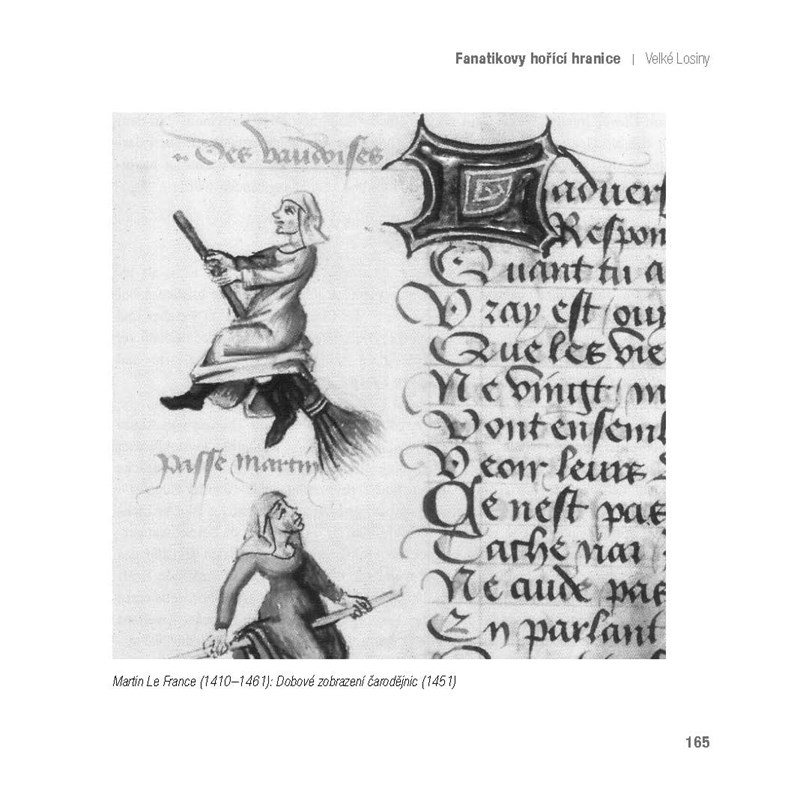 Fanatikovy hořící hranice | Velké Losiny
Des vaudoises
passe martin
aduers
Respon
Quant tu a
Vray est, ouy
Que les vie
Ne vingt, m
Vont ensem
Veoir leurs
Ce nest pas
Tache nar
Ne cuide pas
En parlant
Martin Le France (1410–1461): Dobové zobrazení čarodějnic (1451)
165